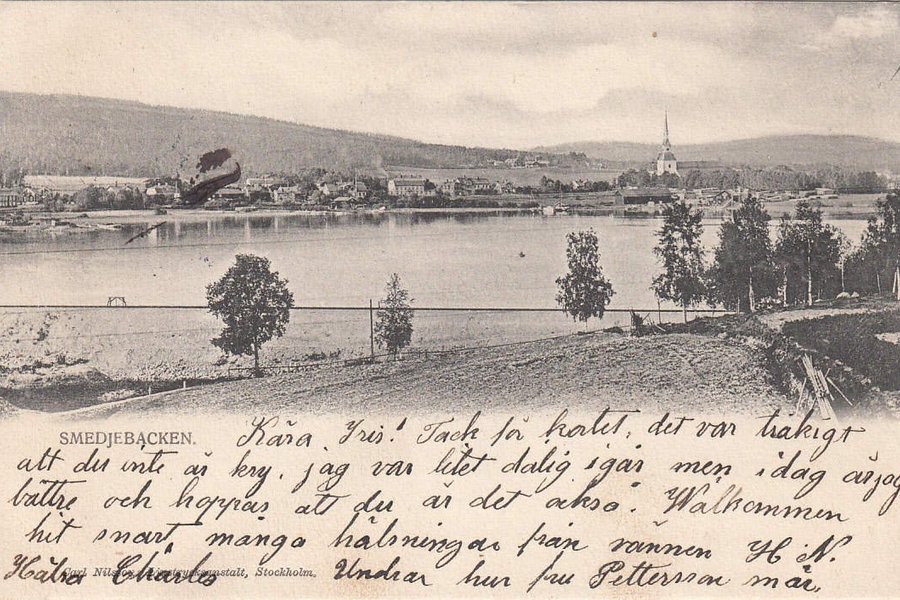 SMEDJEBACKEN.
Kära Iris! Tack för kortet, det var tråkigt
att du inte är kry, jag var litet dålig igår men idag är jag
bättre och hoppas att du är det också. Walkommen
hit snart, många hälsningar från vännen H N.
Carl Nilsson, Ljustrycksanstalt, Stockholm.
Hälsa Charles Undrar hur fru Pettersson mår.